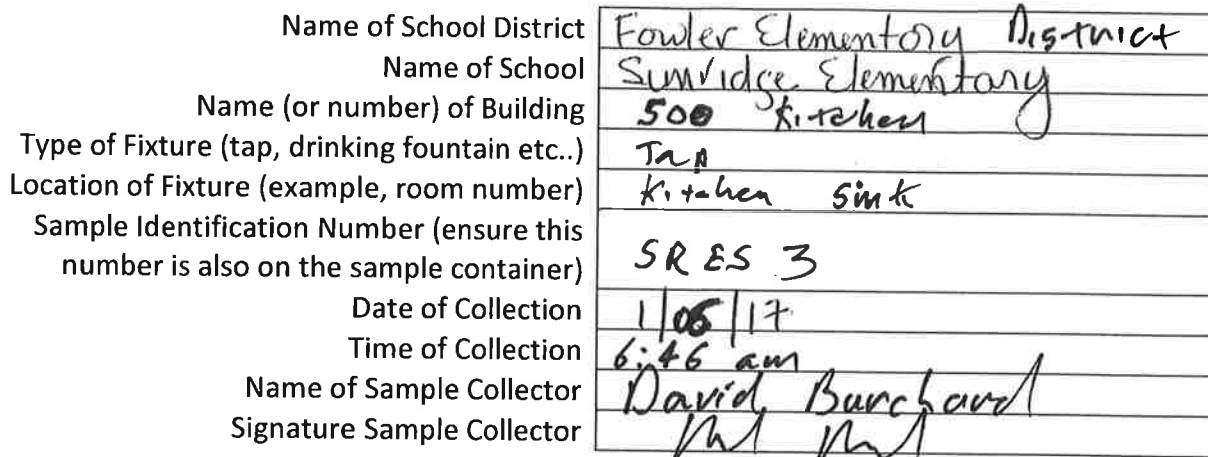 Name of School District Fowler Elementory District
Name of School Sunridge Elementary
Name (or number) of Building 500 Kitchen
Type of Fixture (tap, drinking fountain etc..) Tap
Location of Fixture (example, room number) Kitchen Sink
Sample Identification Number (ensure this
number is also on the sample container) SRES 3
Date of Collection 1/06/17
Time of Collection 6:46 am
Name of Sample Collector David Burchard
Signature Sample Collector